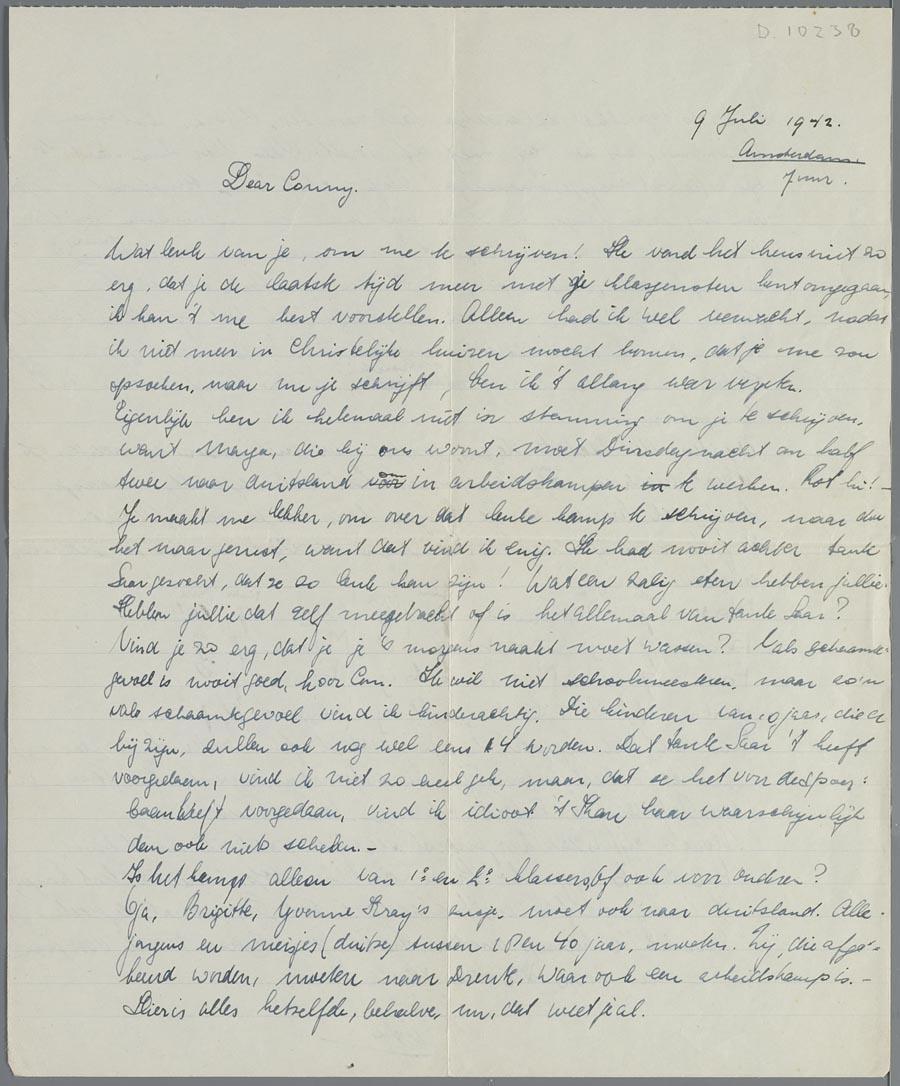 D.10238
9 Juli 1942.
Amsterdam.
7 uur.
Dear Conny.
Wat leuk van je, om me te schrijven! Ik vond het heus niet zo
erg, dat je de laatste tijd meer met je klasgenoten bent omgegaan,
ik kan 't me best voorstellen. Alleen had ik wel verwacht, nadat
ik niet meer in Christelijke huizen mocht komen, dat je me zou
opzoeken, maar nu je schrijft, ben ik 't allang weer vergeten.
Eigenlijk ben ik helemaal niet in stemming om je te schrijven,
want Marga, die bij ons woont, moet Dinsdagnacht om half
twee naar duitsland voor in arbeidskampen in te werken. Rot hè! –
Je maakt me lekker, om over dat leuke kamp te schrijven, maar doe
het maar gerust, want dat vind ik enig. Ik had nooit achter tante
Saar gezocht, dat ze zo leuk kan zijn! Wat een zalig eten hebben jullie.
Hebben jullie dat zelf meegebracht of is het allemaal van tante Saar?
Vind je zo erg, dat je je 's morgens naakt moet wassen? Vals schaamte-
gevoel is nooit goed, hoor Con. Ik wil niet schoolmeesteren, maar zo'n
vals schaamtegevoel vind ik kinderachtig. Die kinderen van 10 jaar, die er
bij zijn, zullen ook nog wel eens 14 worden. Dat tante Saar 't heeft
voorgedaan, vind ik niet zo heel gek, maar, dat ze het voor de spoor-
baan heeft voorgedaan, vind ik idioot. 't Kan haar waarschijnlijk
dan ook niets schelen. –
Is het kamp alleen van 1e en 2e klassers, of ook voor anderen?
O ja, Brigitte, Yvonne Kray's zusje, moet ook naar duitsland. Alle
jongens en meisjes (duitse) tussen 18 en 40 jaar, moeten. Zij, die afge-
keurd worden, moeten naar Drente, waar ook een arbeidskamp is. –
Hier is alles hetzelfde, behalve, nu, dat weet je al.